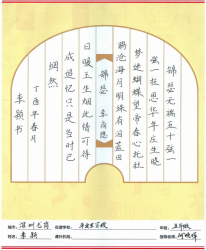 锦瑟无端五十弦一
弦一柱思华年庄生晓
梦迷蝴蝶望帝春心托杜
鹃沧海月明珠有泪蓝田
锦瑟 李商隐
日暖玉生烟此情可待
成追忆只是当时已
惘然
丁酉年春月
李颖书
城市：深圳龙岗
年级：五年级
姓名：李颖